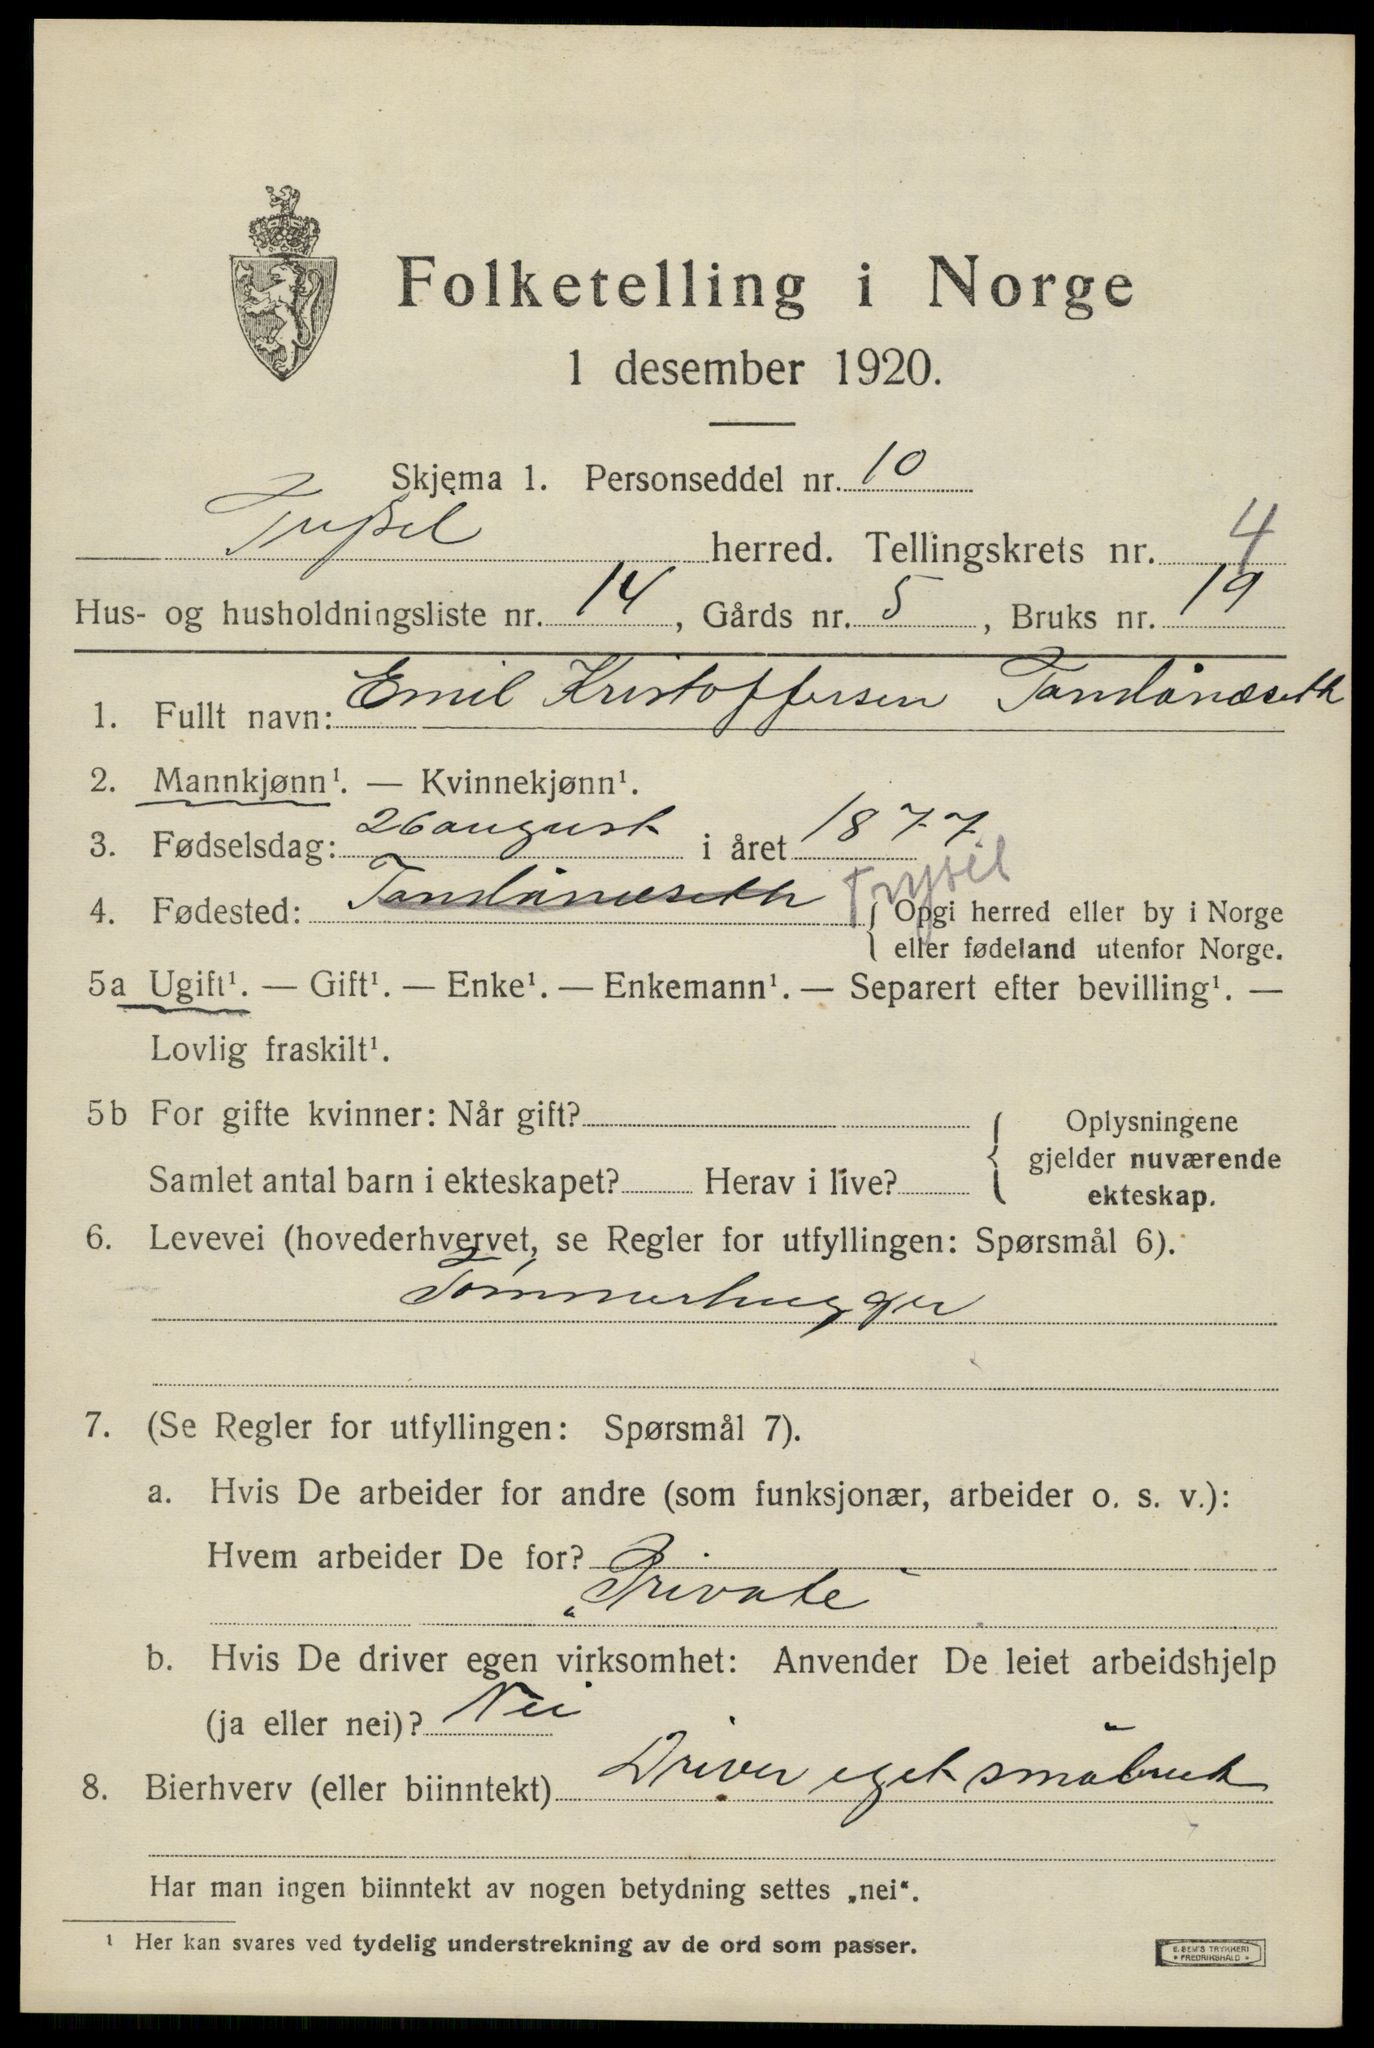 Folketelling i Norge
1 desember 1920.
Skjema 1. Personseddel nr. 10
Trysil herred. Tellingskrets nr. 4
Hus- og husholdningsliste nr. 14, Gårds nr. 5, Bruks nr. 19
1. Fullt navn: Emil Kristoffersen Tandånæseth
2. Mannkjønn¹. — Kvinnekjønn¹.
3. Fødselsdag: 26 august i året 1877
4. Fødested: Tandånæseth Trysil { Opgi herred eller by i Norge
eller fødeland utenfor Norge.
5a Ugift¹. — Gift¹. — Enke¹. — Enkemann¹. — Separert efter bevilling¹. —
Lovlig fraskilt¹.
5b For gifte kvinner: Når gift?
Samlet antal barn i ekteskapet? Herav i live?
{ Oplysningene
gjelder nuværende
ekteskap.
6. Levevei (hovederhvervet, se Regler for utfyllingen: Spørsmål 6).
Tømmerhugger
7. (Se Regler for utfyllingen: Spørsmål 7).
a. Hvis De arbeider for andre (som funksjonær, arbeider o. s. v.):
Hvem arbeider De for?
„Private"
b. Hvis De driver egen virksomhet: Anvender De leiet arbeidshjelp
(ja eller nei)? Nei
8. Bierhverv (eller biinntekt) Driver eget småbruk
Har man ingen biinntekt av nogen betydning settes „nei“.
¹ Her kan svares ved tydelig understrekning av de ord som passer.
E. SEM'S TRYKKERI
• FREDRIKSHALD •